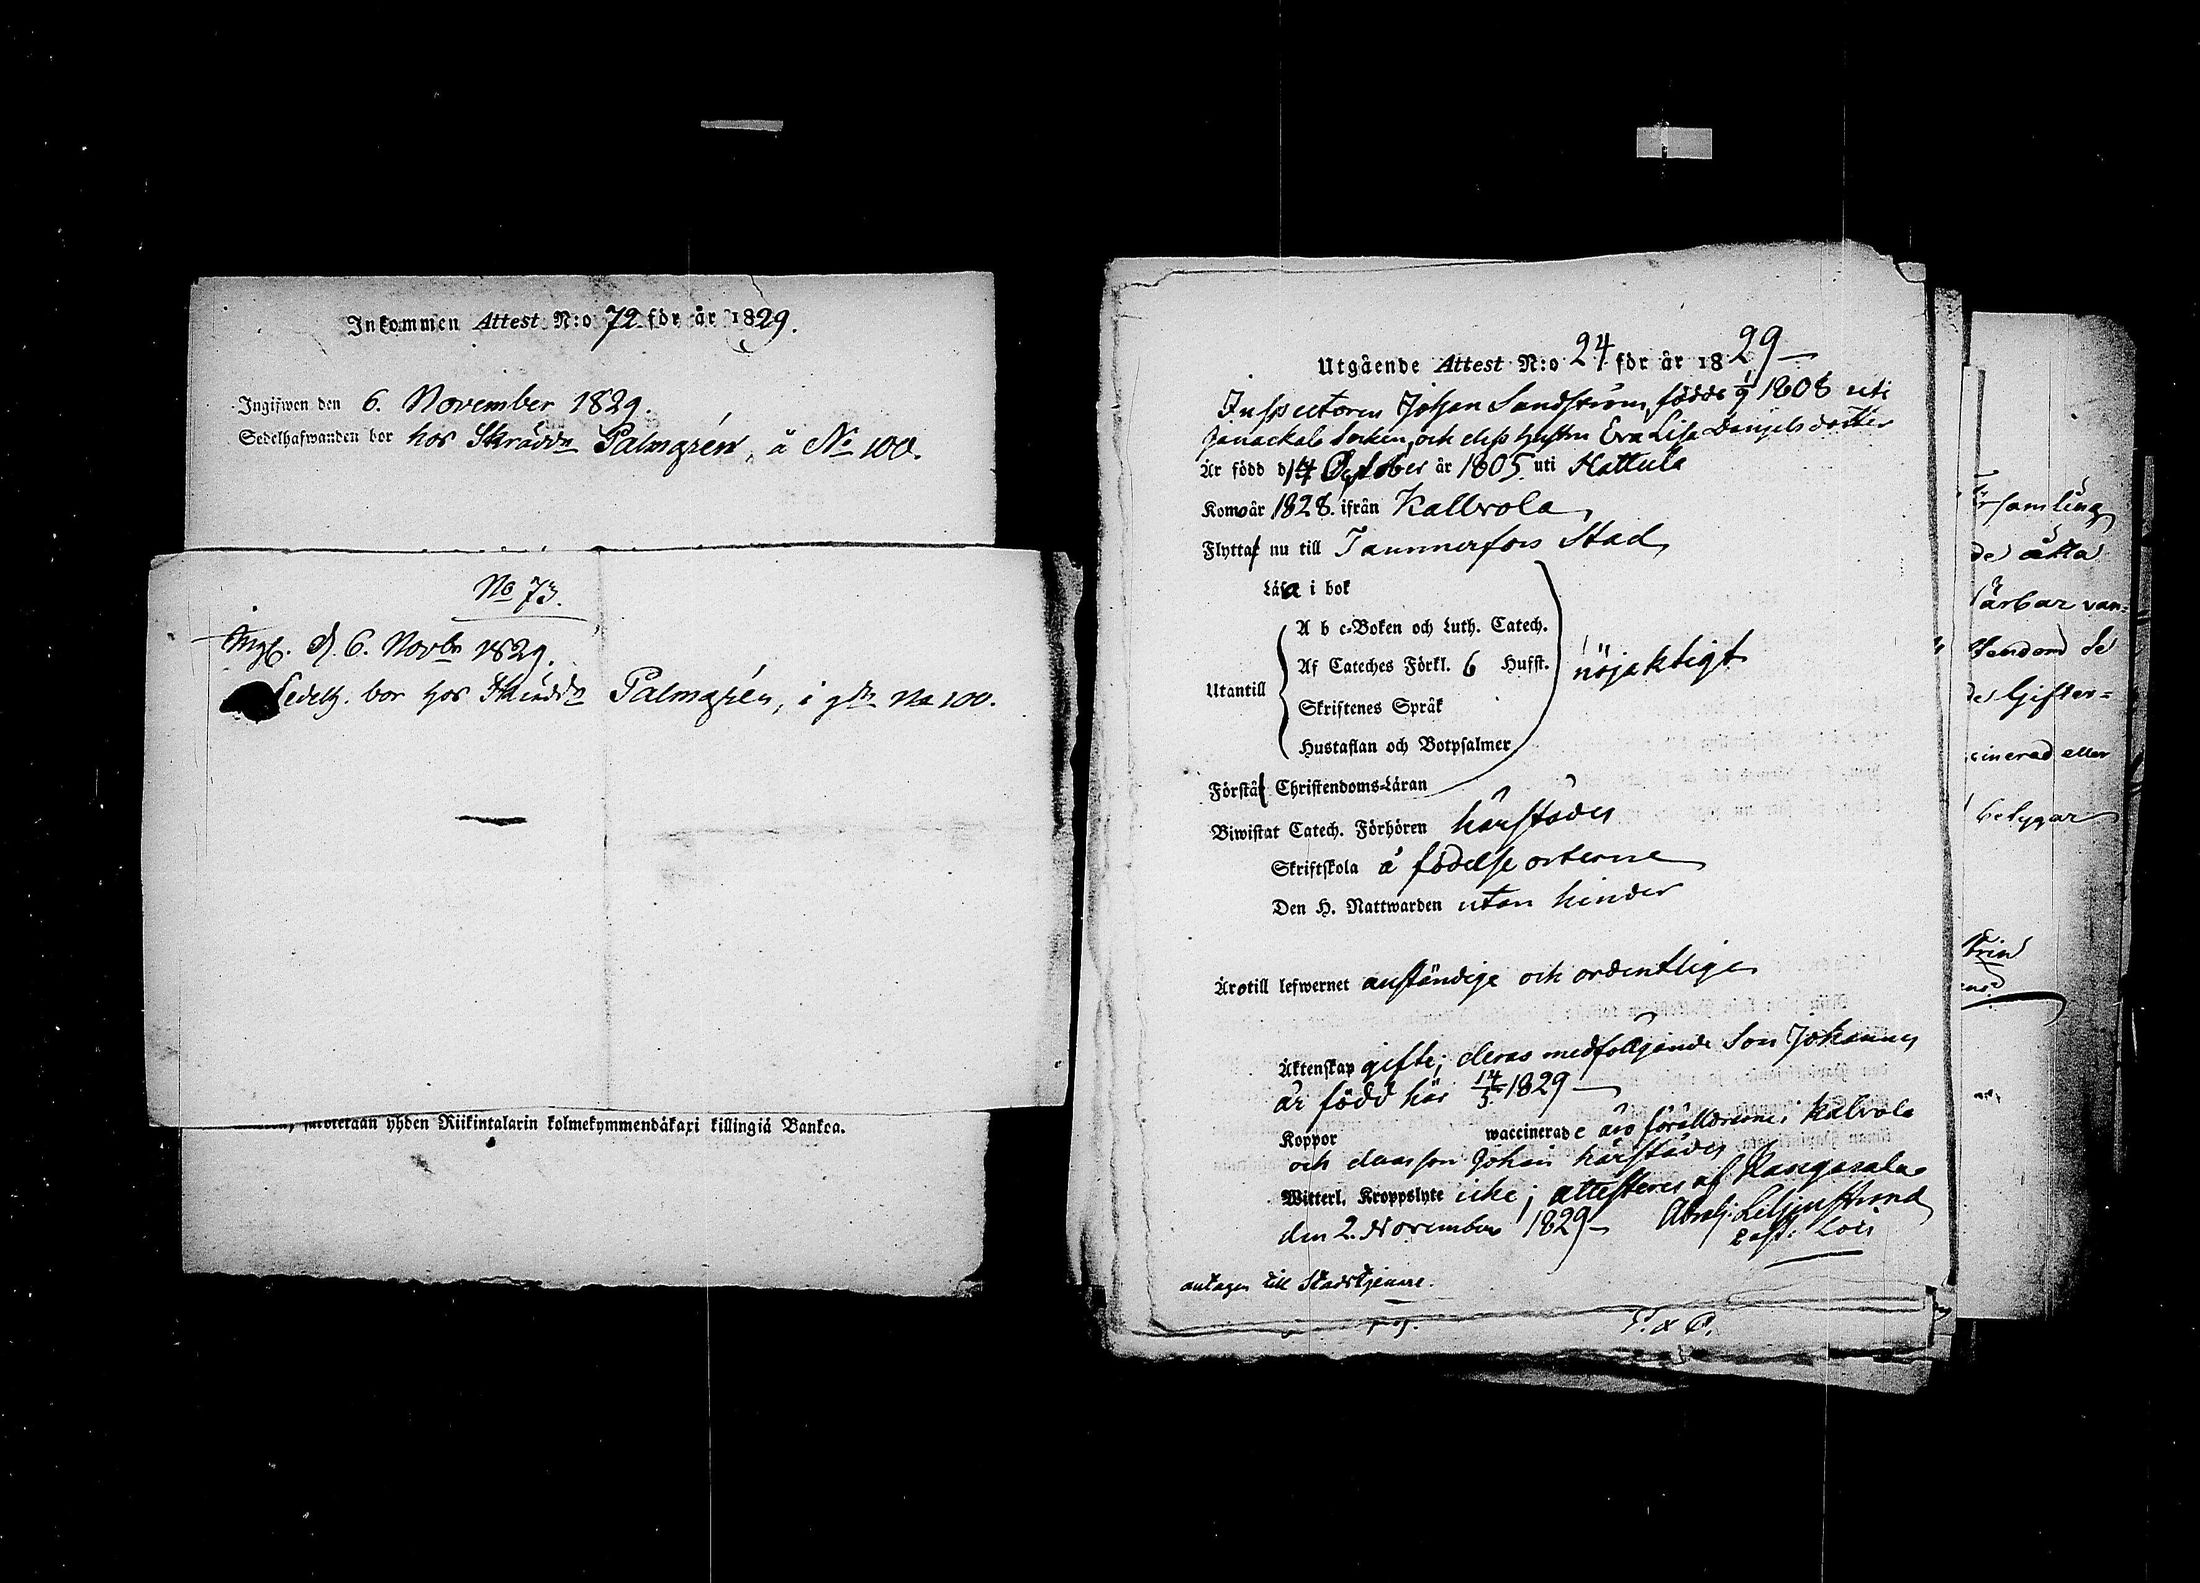 Inkommen Attest N:o 72 för år 1829.
Ingifwen den 6. November 1829.
Sedelhafwanden bor hos Skrädd. Palmgrén, å No 100.
No 73.
Ingf. d. 6. Novbr 1829.
Sedelh. bor hos Skrädd. Palmgrén, i gdn No 100.
yhden Riikintalarin kolmekymmendäkaxi killingiä Bankca.
Utgående Attest N:o 24 för år 1829
Inspectoren Johan Sandström, född 1/9 1808 uti
Janackala Socken, och dess hustru Eva Lisa Danjelsdotter
Är född d. 14 October år 1805. uti Hattula
Komo år 1828. ifrån Kallvola
Flytta nu till Tammerfors Stad
Läsa i bok
Utantill
A b c-Boken och Luth. Catech.
Af Cateches Förkl. 6 Hufst.
Skriftenes Språk
Hustaflan och Botpsalmer
nöjaktigt
Förstå Christendoms-Läran
Biwistat Catech. Förhören härstädes
Skriftskola å födelse orterne
Den H. Nattwarden utan hinder
Äro till lefwernet anständige och ordentlige
Äktenskap gifte; deras medföljande Son Johannes
är född här 14/5 1829
Koppor waccinerade äro föräldrarne i Kalvola
och deras son Johan härstädes
Witterl. Kroppslyte icke; attesteres af Kangasala
den 2. November 1829 Abrah. Liljenstrand
Past. Loci
antagen till Stadstjenare.
P. & C.
församling
de åtta
ärbar van=
stendom de
de Gifter=
cinerad eller
betygar